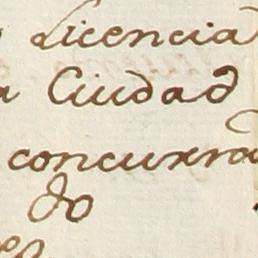 Licencia
a Ciudad
concurra
do